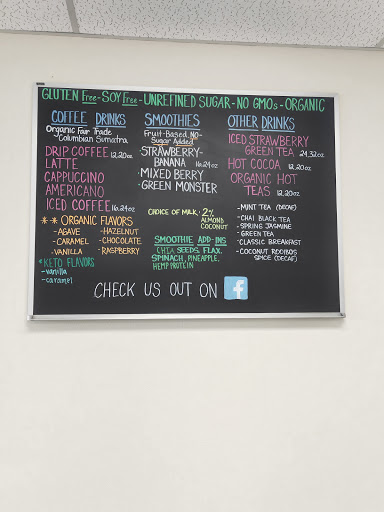 GLUTEN Free - SOY free - UNREFINED SUGAR - NO GMOs - ORGANIC
COFFEE DRINKS
Organic Fair Trade
Columbian Sumatra
DRIP COFFEE 12,20oz
LATTE
CAPPUCCINO
AMERICANO
ICED COFFEE 16,24oz
** ORGANIC FLAVORS
- AGAVE
- CARAMEL
- VANILLA
- HAZELNUT
- CHOCOLATE
- RASPBERRY
*KETO FLAVORS
- vanilla
- caramel
SMOOTHIES
Fruit-Based NO-
Sugar Added
STRAWBERRY-
BANANA 16,24oz
· MIXED BERRY
· GREEN MONSTER
CHOICE OF MILK: 2%
ALMOND
COCONUT
SMOOTHIE ADD-INS
CHIA SEEDS, FLAX,
SPINACH, PINEAPPLE,
HEMP PROTEIN
OTHER DRINKS
ICED STRAWBERRY
GREEN TEA 24,32oz
HOT COCOA 12,20oz
ORGANIC HOT
TEAS 12,20oz
- MINT TEA (DECAF)
- CHAI BLACK TEA
- SPRING JASMINE
- GREEN TEA
- CLASSIC BREAKFAST
- COCONUT ROOIBOS
SPICE (DECAF)
CHECK US OUT ON f